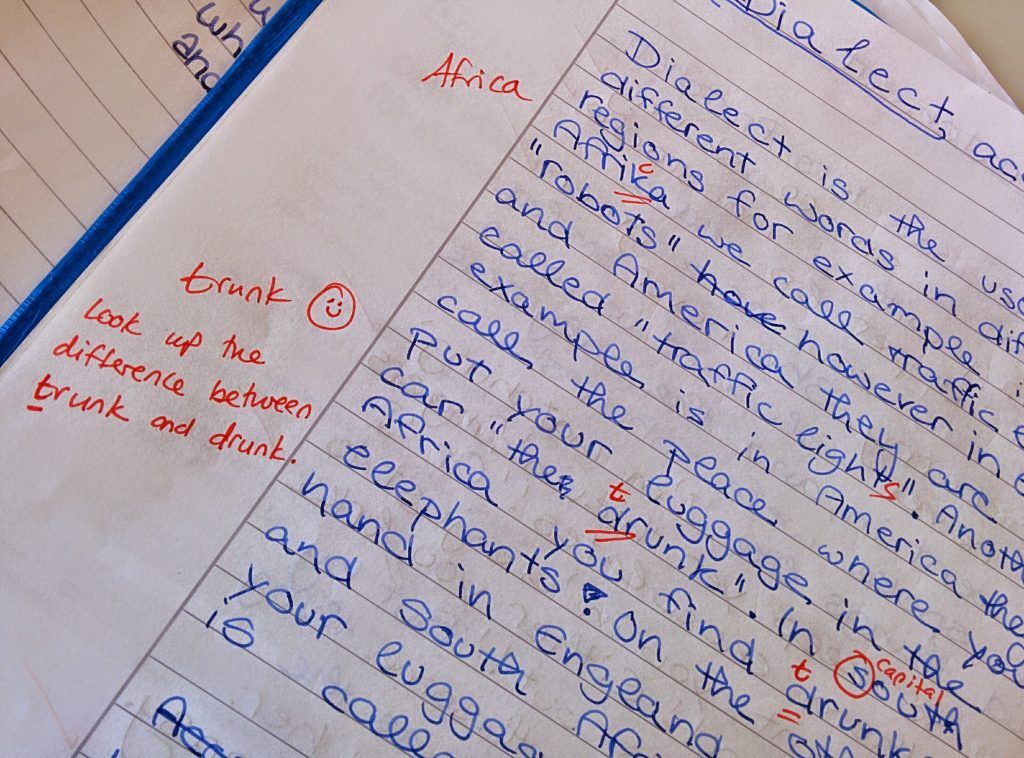 wh
and
Dialect, acc
Dialect is the use
different words in dif
regions for example i
Afrika we call traffic
"robots" have however in E
and America they are
called "traffic lights". Anoth
example is in America the
call the place where you
put your luggage in the
car "the drunk". In south
Africa you find drunk
elephants! On the oth
hand in England
and south Afri
your luggag
is calle
Acc
Africa
c
trunk
Look up the
difference between
trunk and drunk.
s
t
capital
t